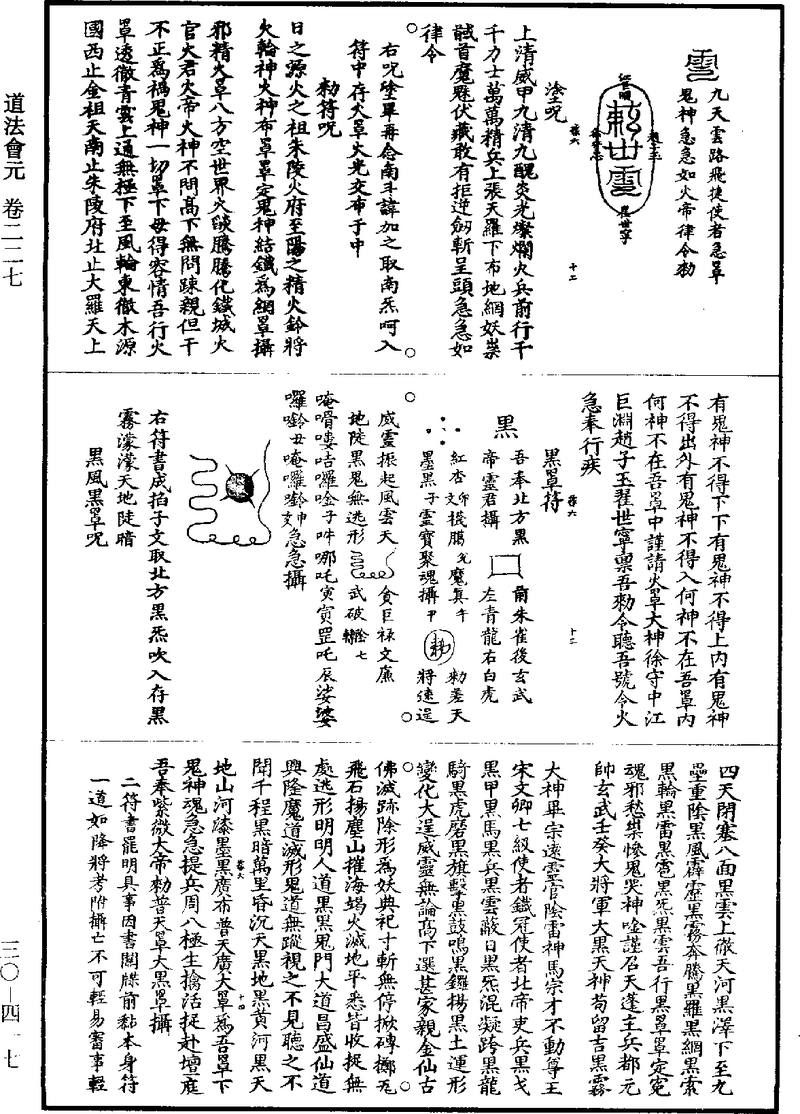 道法會元　卷二二七
三〇—四一七
九天雲路飛捷使者急罩
鬼神急急如火帝律令勑
塗呪
上清威甲九清九醜炎光燦爛火兵前行千
千力士萬萬精兵上張天羅下布地網妖祟
馘首魔魅伏藏敢有拒逆劒斬呈頭急急如
律令
右呪塗畢再念南斗諱加之取南炁呵入
符中存火罩火光交布于中
勑符呪
日之源火之祖朱陵火府至陽之精火鈴將
火輪神火神布罩罩定鬼神結鐵爲網罩攝
邪精火罩八方空世界火燄騰騰化鐵城火
官火君火帝火神不問高下無問踈親但干
不正爲禍鬼神一切罩下毋得容情吾行火
罩透徹青雲上通無極下至風輪東徹木源
國西止金祖天南止朱陵府北止大羅天上
有鬼神不得下下有鬼神不得上內有鬼神
不得出外有鬼神不得入何神不在吾罩內
何神不在吾罩中謹請火罩大神徐守中江
巨淵趙子玉翟世寧稟吾勑令聽吾號令火
急奉行疾
黑罩符
黑
吾奉北方黑
帝靈君攝
前朱雀後玄武
左青龍右白虎
威靈振起風雲天
地陡黑鬼無逃形
貪巨祿文廉
武破
急急攝
右符書成拍子文取北方黑炁吹入存黑
霧濛濛天地陡暗
黑風黑罩呪
四天閉塞八面黑雲上徹天河黑澤下至九
壘重陰黑風霹靂黑霧奔騰黑羅黑網黑索
黑輪黑雷黑雹黑炁黑雲吾行黑罩罩定寃
魂邪愁㷀慘鬼哭神唫謹召天蓬主兵都元
帥玄武壬癸大將軍大黑天神苟留吉黑霧
大神畢宗遠靈官陰雷神馬宗才不動尊王
宋文卿七級使者鐵冠使者北帝吏兵黑戈
黑甲黑馬黑兵黑雲蔽日黑炁混凝跨黑龍
騎黑虎磨黑旗擊黑鼓鳴黑鑼揚黑土運形
變化大逞威靈無論高下選甚家親金仙古
佛滅跡除形爲妖典祀寸斬無停掀磚擲瓦
飛石揚塵山摧海竭火滅地平悉皆收捉無
處逃形明明人道黑黑鬼門大道昌盛仙道
興隆魔道滅形鬼道無蹤視之不見聽之不
聞千程黑暗萬里昏沉天黑地黑黃河黑天
地山河漆墨黑廣布普天廣大罩爲吾罩下
鬼神魂急急提兵周八極生擒活捉赴壇庭
吾奉紫微大帝勑普天罩大黑罩攝
二符書罷明具事因書關牒前黏本身符
一道如降將考附攝亡不可輕易蓄事輕